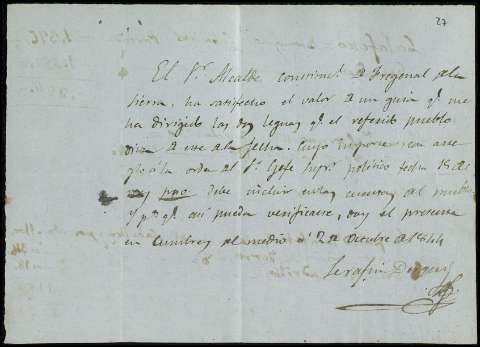 27
El Sr. Alcalde constitucl. de Fregenal de la
Sierra, ha satisfecho el valor de un guia qe. me
ha dirigido las dos leguas qe. el referido pueblo
dista de este de la fecha. Cuyo importe con arre-
glo á la orden del Sr. Gefe Supr. politico fecha 18 de
ppo debe incluir en las cuentas del pueblo
y pa. qe. asi pueda verificarse, doy el presente
en Cumbres de enmedio á 2 de Octubre de 1844
Serafin